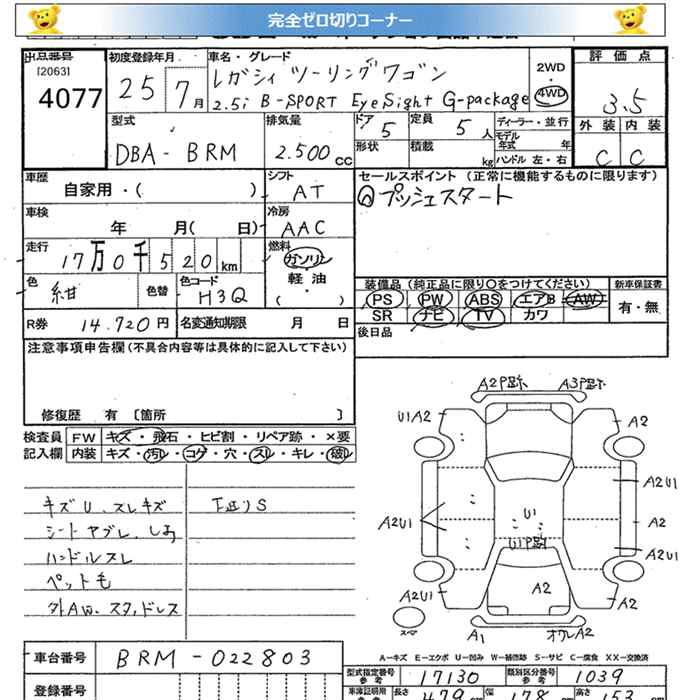 完全ゼロ切りコーナー
出品番号 初度登録年月 車名・グレード 評価点
[2063]
4077
25 7月
レガシィ ツーリングワゴン
2.5i B-SPORT EyeSight G-package
2WD・4WD
3.5
型式 排気量 ドア 定員 ディーラー・並行 外装 内装
DBA-BRM 2.500cc 5 5人 モデル年式 年 C C
形状 積載 kg ハンドル 左・右
車歴 シフト セールスポイント (正常に機能するものに限ります)
自家用・( ) AT プッシュスタート
車検 冷房
年 月( 日) AAC
走行 燃料
17万0千520km ガソリン・軽油・( )
色 色替 色コード 装備品 (純正品に限り○をつけてください) 新車保証書
紺 H3Q PS PW ABS エアB AW 有・無
SR ナビ TV カワ
R券 14.720円 名変通知期限 月 日 後日品
注意事項申告欄 (不具合内容等は具体的に記入して下さい)
修復歴 有 [箇所 ]
検査員 FW キズ・飛石・ヒビ割・リペア跡・×要
記入欄 内装 キズ・汚レ・コゲ・穴・スレ・キレ・破レ
キズU.スレキズ 下廻りS
シートヤブレ.しみ
ハンドルスレ
ペット毛
外AW.スタッドレス
A2P跡 A3P跡
U1A2 A2
A2U1
A2U1 A2
U1 A2U1
U1P跡
A2U1 A2 A2
スペア
A1 オワレA2
A-キズ E-エクボ U-凹み W-補修跡 S-サビ C-腐食 XX-交換済
車台番号 BRM-022803
登録番号
型式指定番号 参考 17130 類別区分番号 参考 1039
車庫証明用 参考 長さ 479 幅 178 高さ